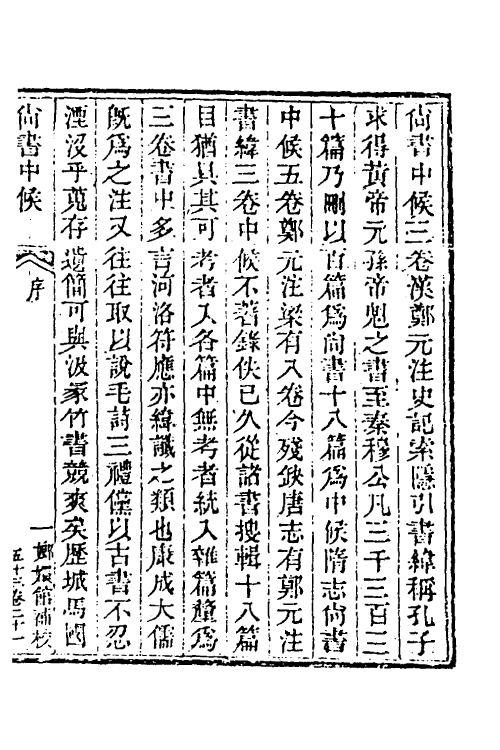 尙書中候三卷漢鄭元注史記索隱引書緯稱孔子
求得黃帝元孫帝魁之書至秦穆公凡三千三百三
十篇乃刪以百篇爲尙書十八篇爲中候隋志尙書
中候五卷鄭元注梁有八卷今殘缺唐志有鄭元注
書緯三卷中候不著錄佚已久從諸書搜輯十八篇
目猶具其可考者入各篇中無考者統入雜篇釐爲
三卷書中多言河洛符應亦緯讖之類也康成大儒
旣爲之注又往往取以說毛詩三禮僅以古書不忍
湮沒乎蒐存遺簡可與汲冢竹書競爽矣歷城馬國
尙書中候 序
一 嫏嬛館補校
五十三卷二十一